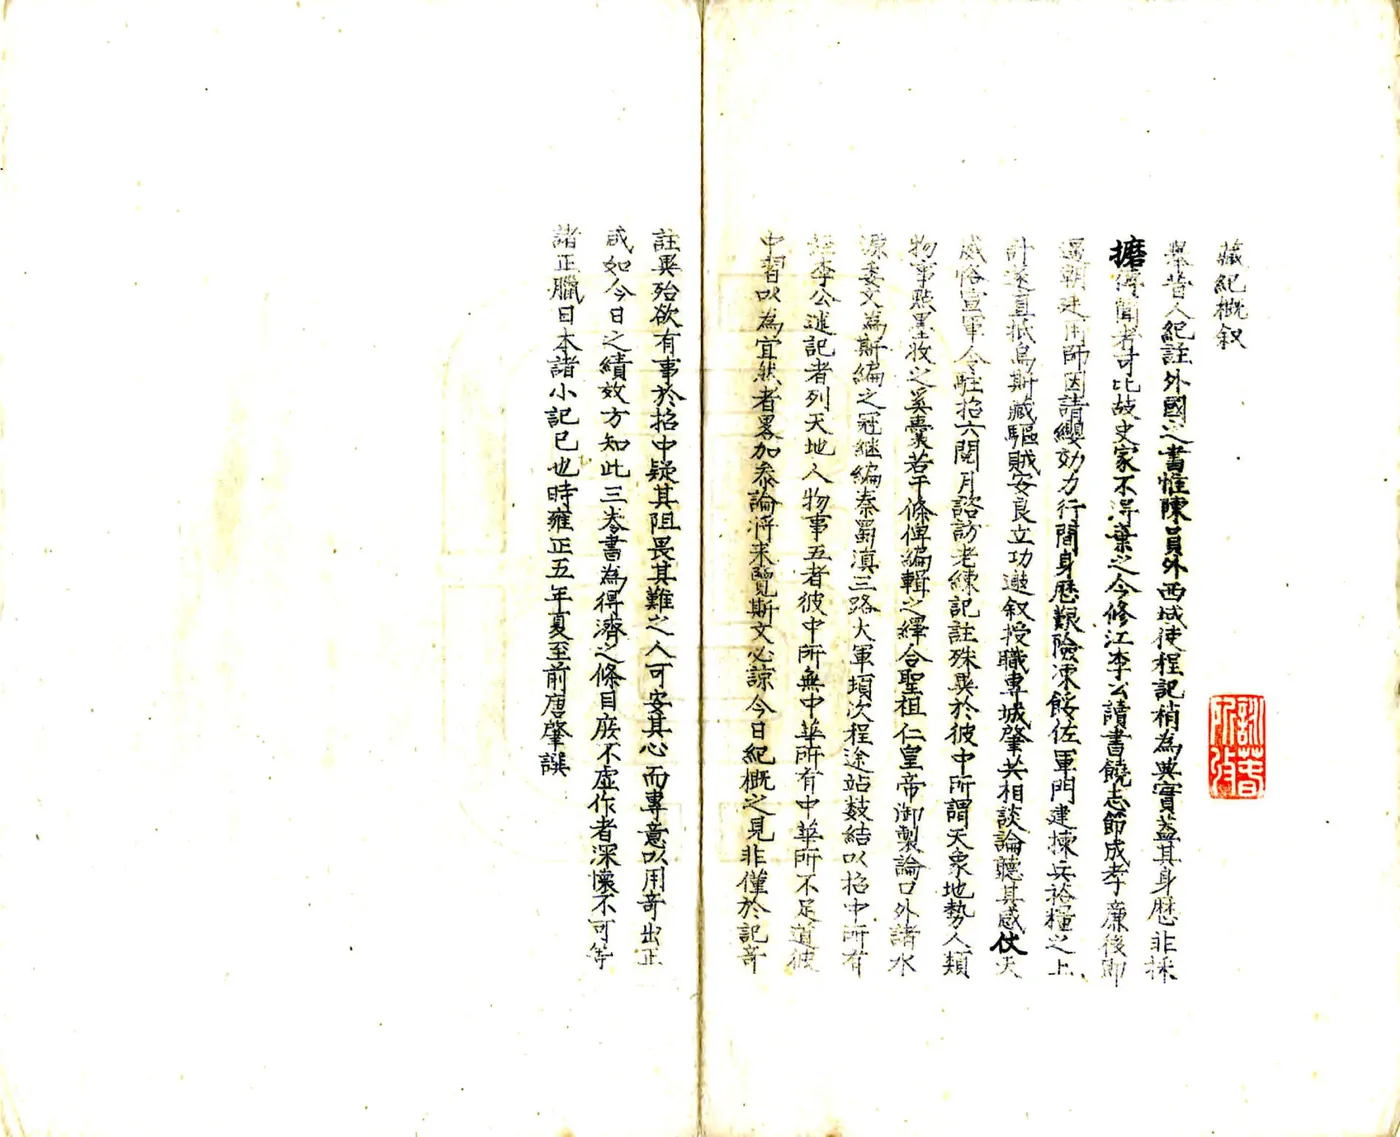 藏紀概叙
畧昔人紀註外國之書惟陳員外西域使程記稍為典實葢其身歷非採
摭傳聞者可比故史家不得棄之今修江李公讀書饒志節成孝廉後即
遇朝廷用師因請纓効力行間身歷艱險凍餒佐軍門建揀兵裕糧之上
計遂直抵烏斯藏驅賊安良立功邀叙授職專城肇共相談論聽其感仗天
威恪宣軍令駐招六閱月諮訪老練記註殊異於彼中所謂天象地勢人類
物事㸃墨收之奚囊若干條俾編輯之繹合聖祖仁皇帝御製論口外諸水
源委文為斯編之冠継編秦蜀滇三路大軍項次程途站数結以招中所有
李公遂記者列天地人物事五者彼中所無中華所有中華所不足道彼
中習以為宜然者畧加叅論將来覽斯文必諒今日紀概之見非僅於記竒
註異殆欲有事於招中疑其阻畏其難之人可安其心而專意以用竒出正
咸如今日之績效方知此三卷書為得濟之條目庻不虚作者深懷不可等
諸正臘日本諸小記已也時雍正五年夏至前唐肇譔